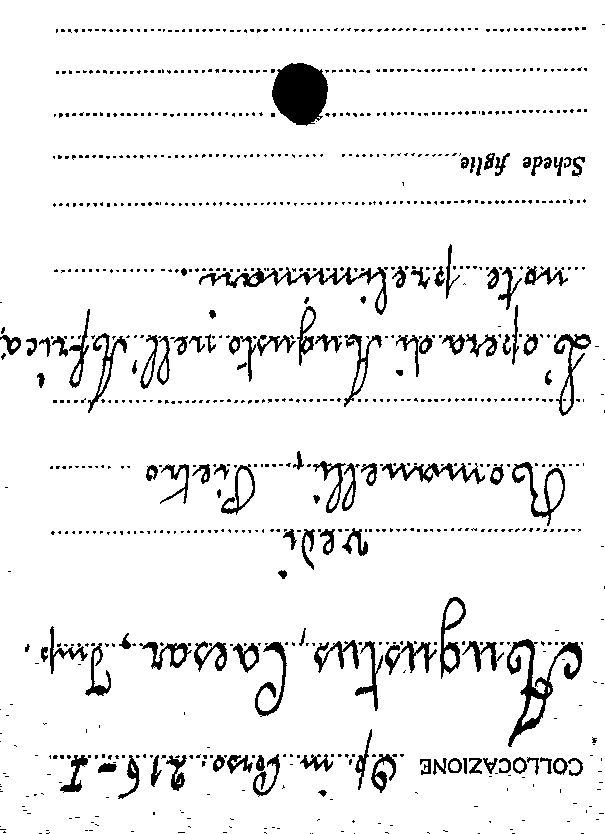 COLLOCAZIONE Op. in Corso. 216-I
Augustus, Caesar, Imp.
vedi
Romanelli, Pietro
L'opera di Augusto nell'Africa;
note preliminari.
Schede figlie